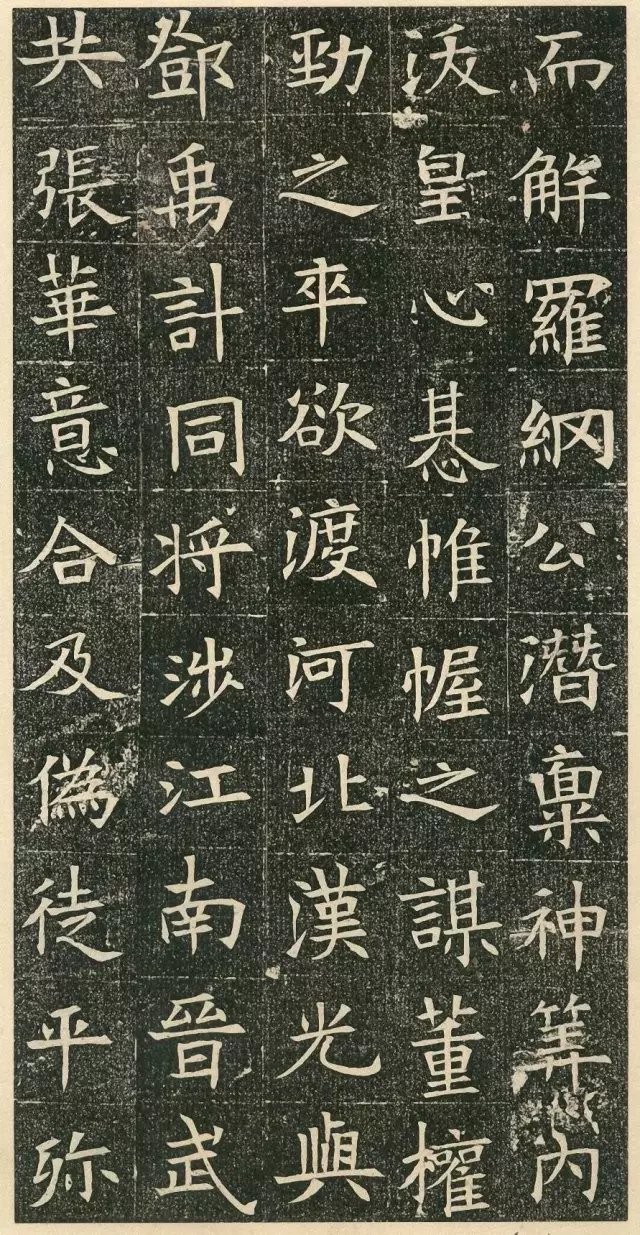 而解羅網公潛稟神筭內
沃皇心惎帷幄之謀董權
勁之卒欲渡河北漢光與
鄧禹計同將涉江南晉武
共張華意合及偽徒平弥